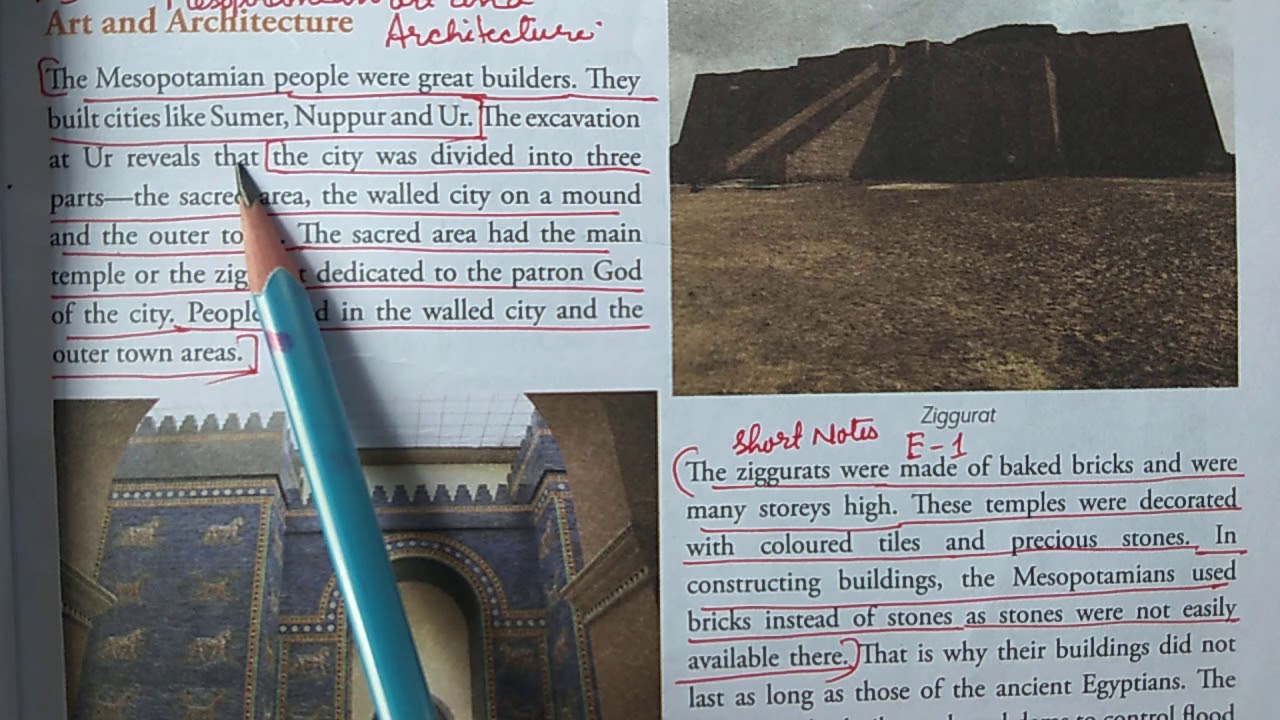 Art and Architecture
Architecture
The Mesopotamian people were great builders. They
built cities like Sumer, Nuppur and Ur. The excavation
at Ur reveals that the city was divided into three
parts—the sacred area, the walled city on a mound
and the outer The sacred area had the main
temple or the dedicated to the patron God
of the city. People in the walled city and the
outer town areas.
Ziggurat
Short Notes E-1
The ziggurats were made of baked bricks and were
many storeys high. These temples were decorated
with coloured tiles and precious stones. In
constructing buildings, the Mesopotamians used
bricks instead of stones as stones were not easily
available there. That is why their buildings did not
last as long as those of the ancient Egyptians. The
and dams to control flood